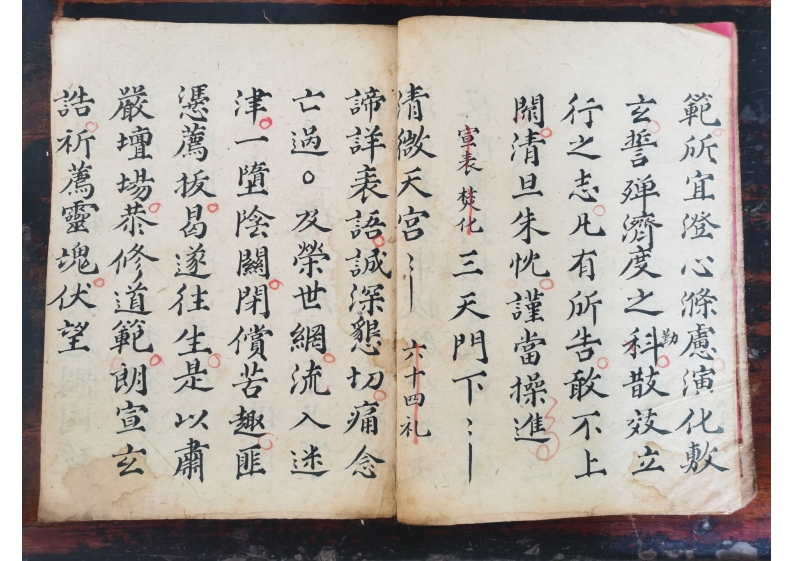 範所宜澄心滌慮演化敷
玄誓殫濟度之科勤散效立
行之志凡有所告敢不上
聞清旦朱忱謹當操進
宣表焚化三天門下〻〡
清微天宮〻〡六十四礼
諦詳表語誠深懇切痛念
亡過〇及榮世網流入迷
津一墮陰關閉償苦趣匪
憑薦拔曷遂往生是以肅
嚴壇場恭修道範朗宣玄
誥祈薦靈魂伏望